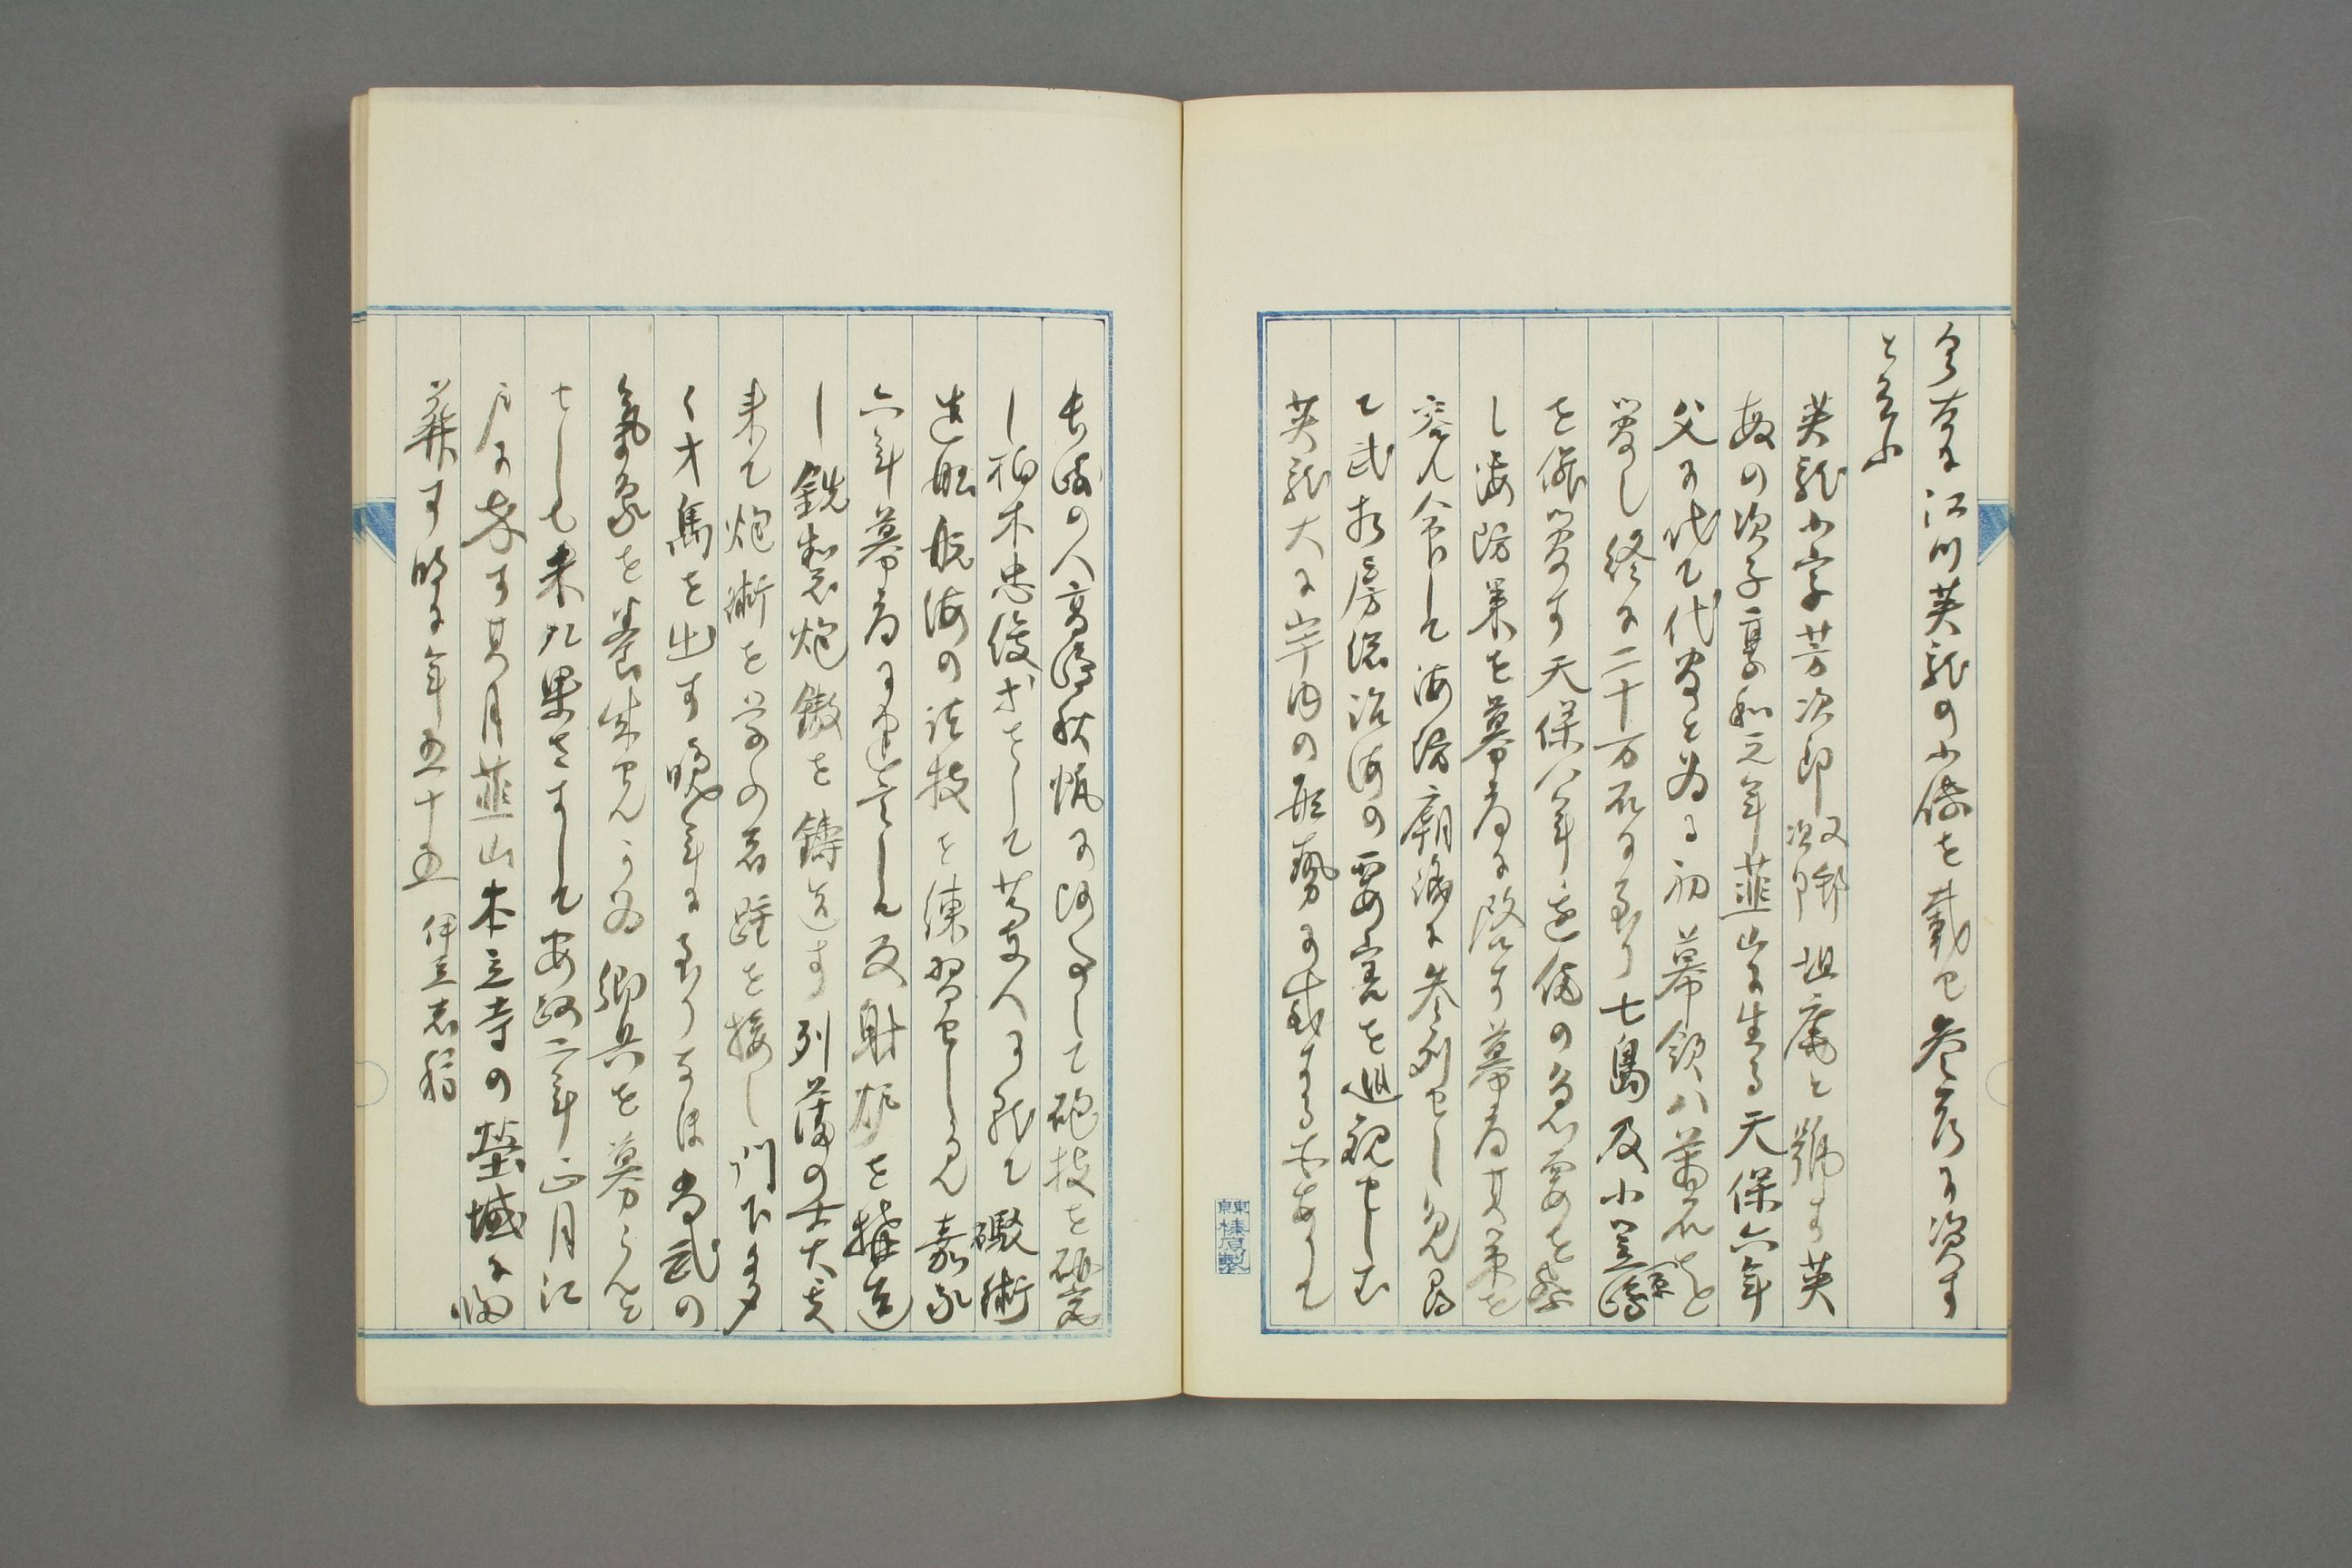 今左に江川英龍の小傳を載せ参考に資す
と云ふ
英龍小字芳次郎又邦次郎坦庵と號す英
毅の次子享和元年韮山に生る天保六年
父に代て代官と為る初幕領八萬石を
管し終に二十万石に至り七島及小笠原島
を併管す天保八年邊備の急要を察
し海防策を幕府に啓す幕府其策を
容れ命して海防廟議に参列せしめ尋
て武相房総沿海の要害を巡視せしむ
英龍大に宇内の形勢に感する所あつて
長崎の人高島秋帆に師事して砲技を研究
し柏木忠俊等をして蘭人に就て礮術
造船航海の諸技を練習せしめ嘉永
六年幕府に建言して反射炉を構造
し銑製炮礮を鋳造す列藩の士大夫
来て炮術を学ふ者踵を接し門下多
く才馬を出す晩年に至りなほ尚武の
氣象を養成せんか為郷兵を募らんと
せしも未た果さすして安政二年正月江
戸に卒す其月韮山本立寺の塋域に帰
葬す時に年五十五 伊豆志稿
東京榛原製